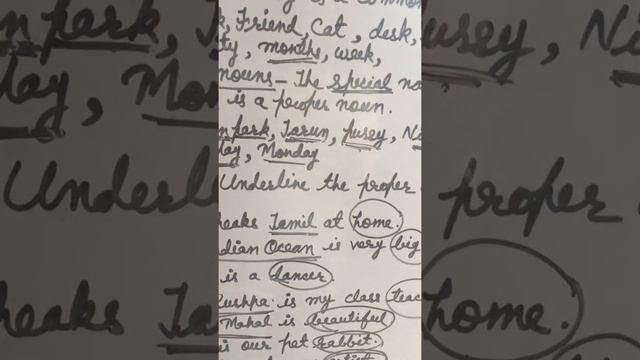 is a common
Friend, Cat, desk,
ty, months, week,
nouns - The special na
is a proper noun.
park, Tarun, pusey, N
day, Monday
Underline the proper
peaks Tamil at home.
dian Ocean is very big
is a dancer.
Pushpa is my class teac
Mahal is beautiful
is our pet rabbit.
artist